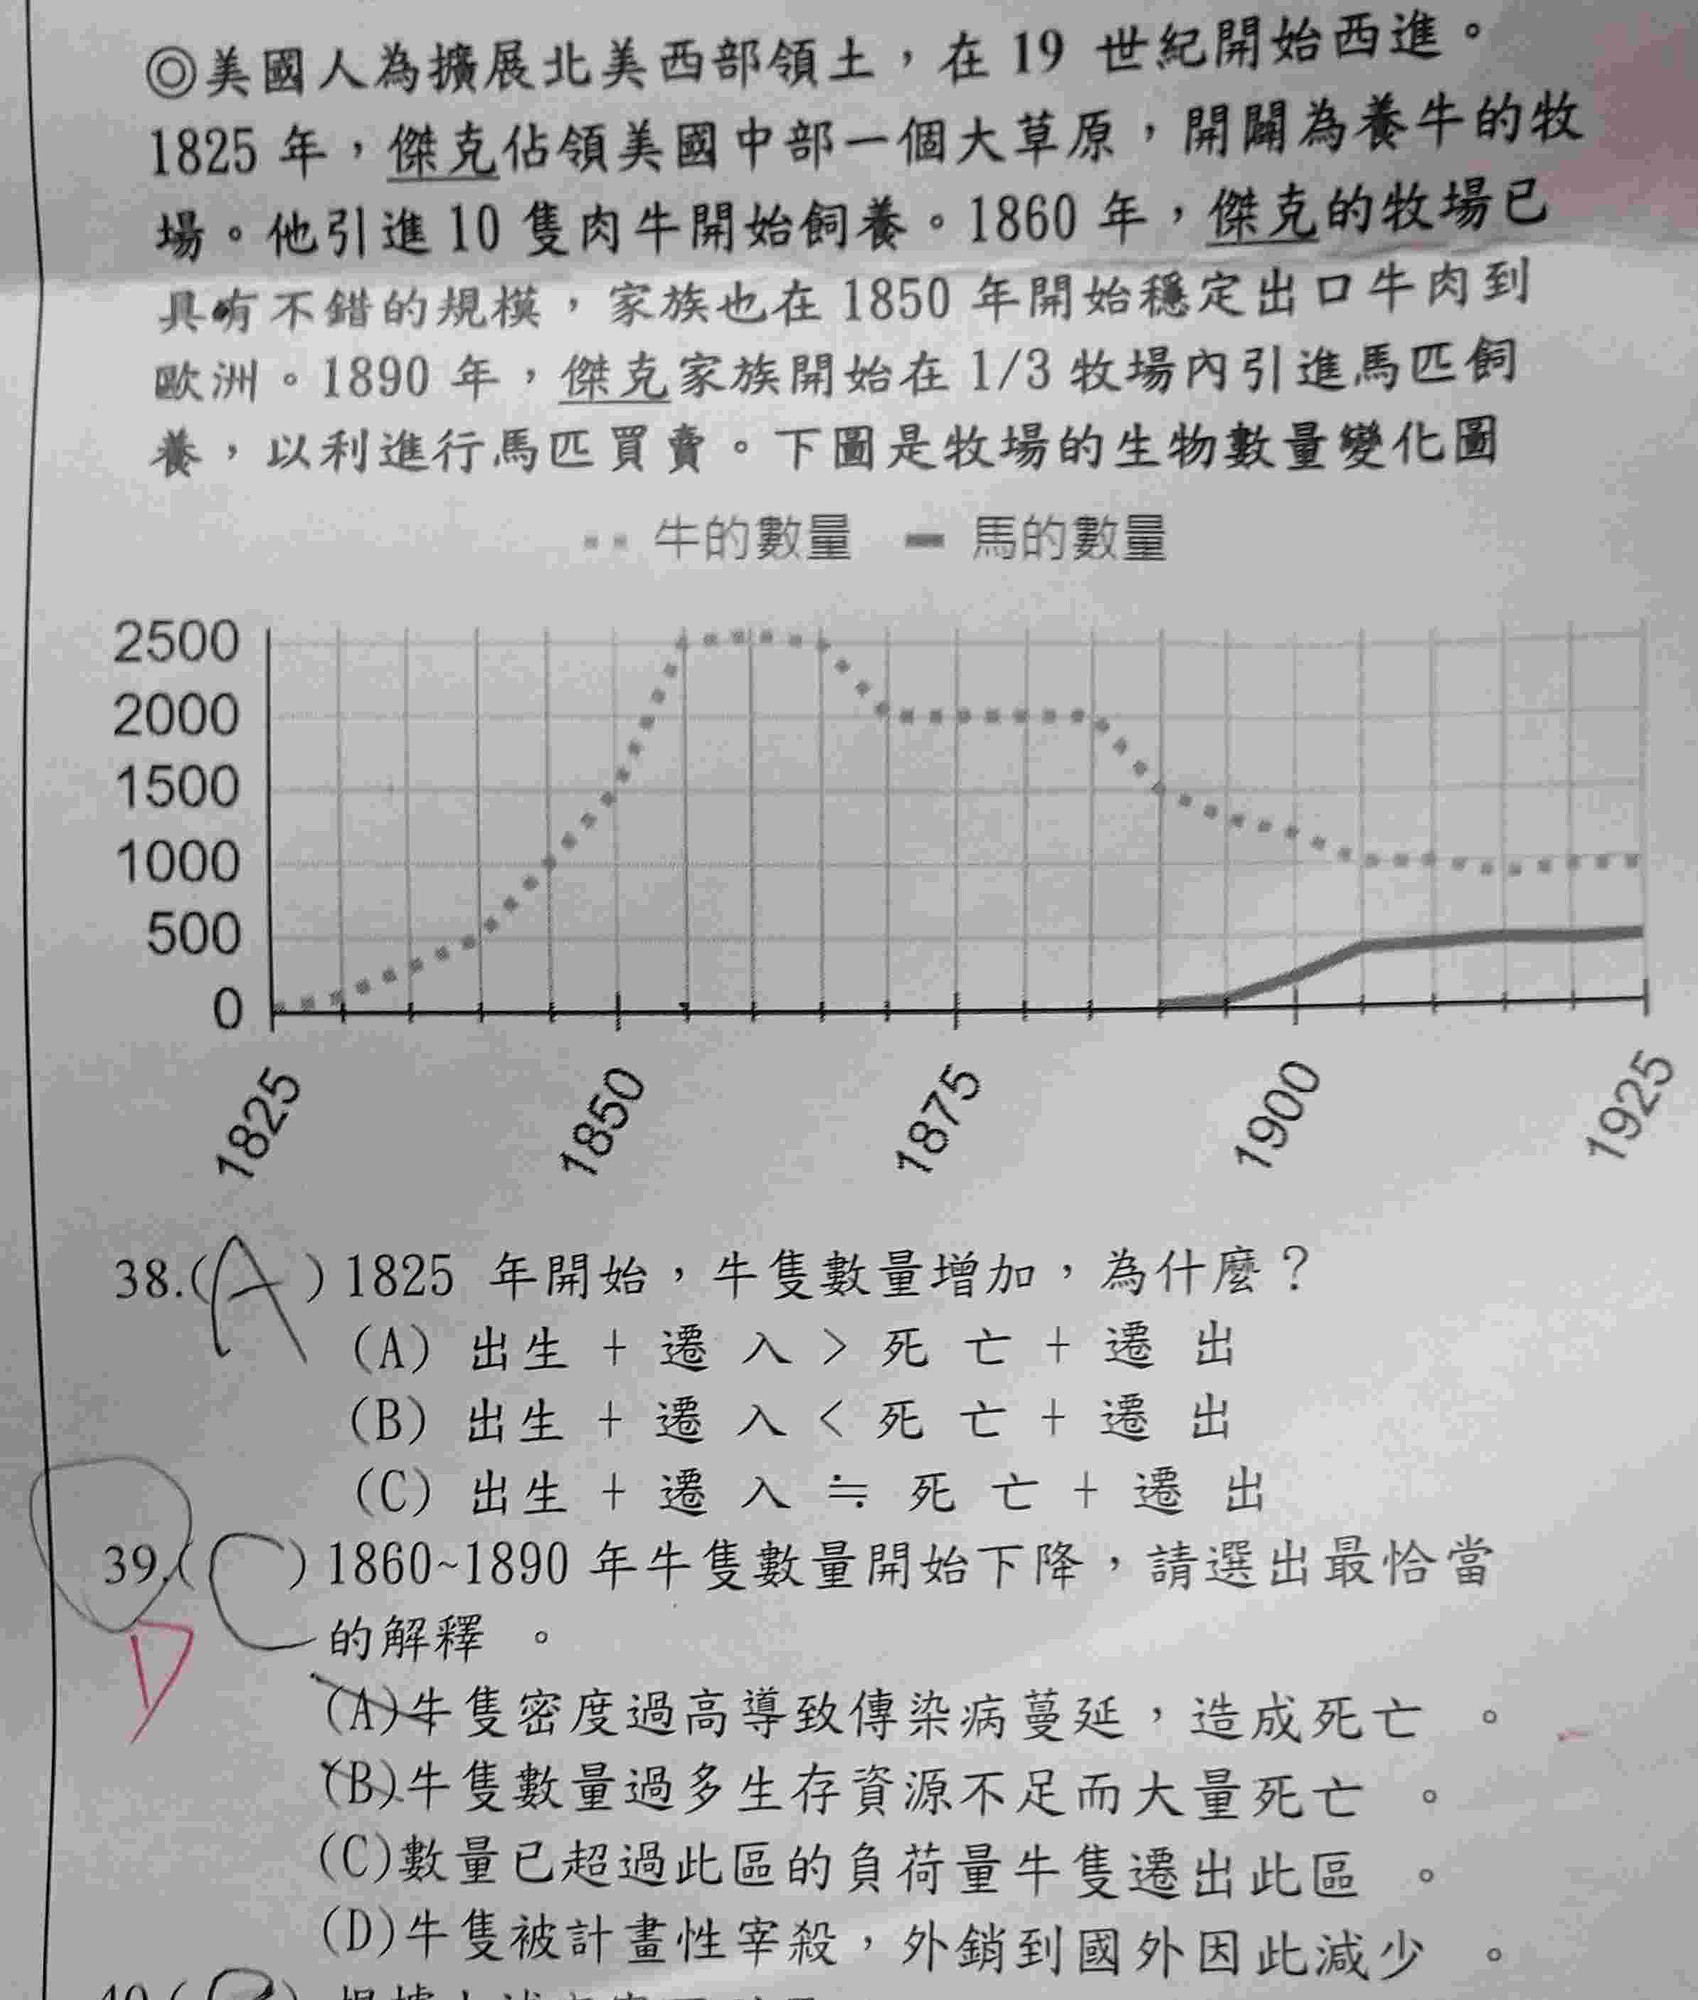 ◎美國人為擴展北美西部領土，在 19 世紀開始西進。
1825 年，傑克佔領美國中部一個大草原，開闢為養牛的牧
場。他引進 10 隻肉牛開始飼養。1860 年，傑克的牧場已
具有不錯的規模，家族也在 1850 年開始穩定出口牛肉到
歐洲。1890 年，傑克家族開始在 1/3 牧場內引進馬匹飼
養，以利進行馬匹買賣。下圖是牧場的生物數量變化圖
牛的數量 馬的數量
2500
2000
1500
1000
500
0
1825 1850 1875 1900 1925
38.(A)1825 年開始，牛隻數量增加，為什麼？
(A) 出生 + 遷入 > 死亡 + 遷出
(B) 出生 + 遷入 < 死亡 + 遷出
(C) 出生 + 遷入 ≒ 死亡 + 遷出
39.(C)1860~1890 年牛隻數量開始下降，請選出最恰當
的解釋 。
D
(A)牛隻密度過高導致傳染病蔓延，造成死亡 。
(B)牛隻數量過多生存資源不足而大量死亡 。
(C)數量已超過此區的負荷量牛隻遷出此區 。
(D)牛隻被計畫性宰殺，外銷到國外因此減少 。